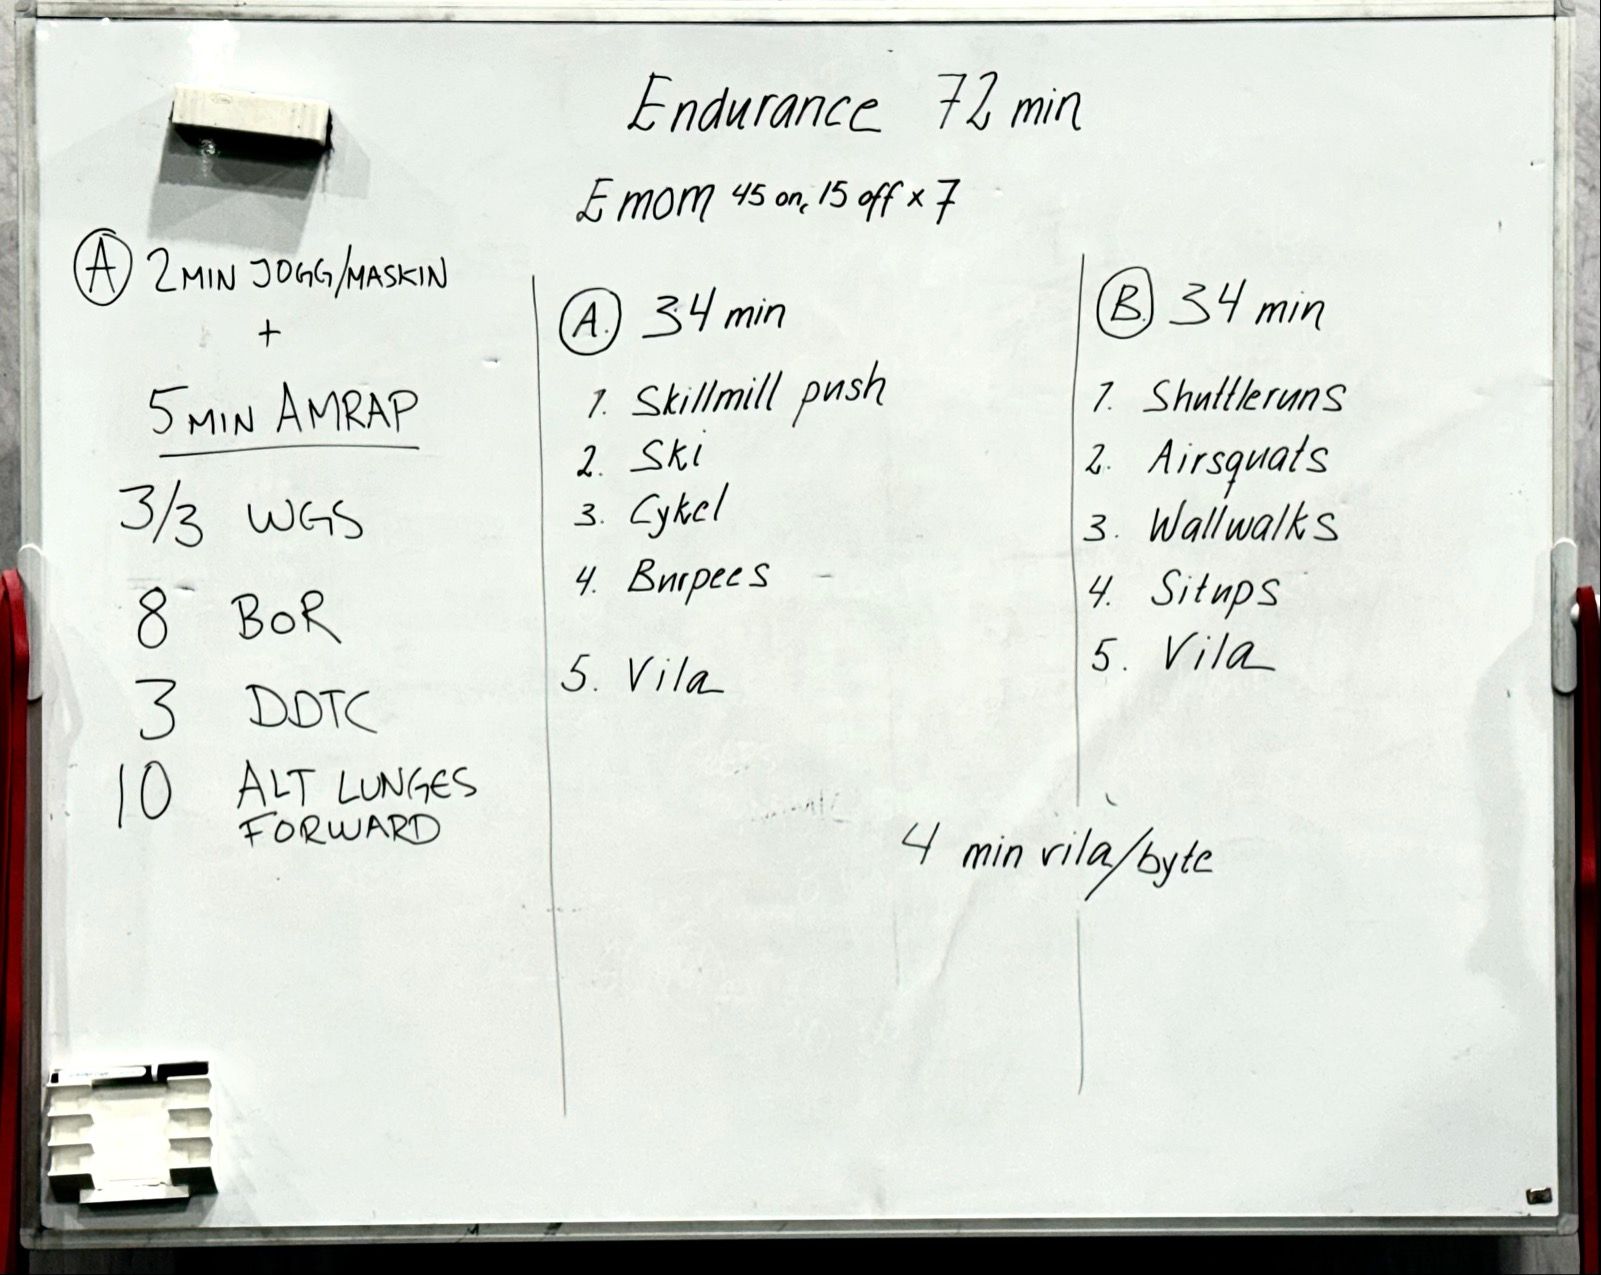 Endurance 72 min
Emom 45 on, 15 off x 7
A 2 MIN JOGG/MASKIN
+
5 MIN AMRAP
3/3 WGS
8 BOR
3 DDTC
10 ALT LUNGES
FORWARD
A. 34 min
1. Skillmill push
2. Ski
3. Cykel
4. Burpees
5. Vila
B. 34 min
1. Shuttleruns
2. Airsquats
3. Wallwalks
4. Situps
5. Vila
4 min vila/byte